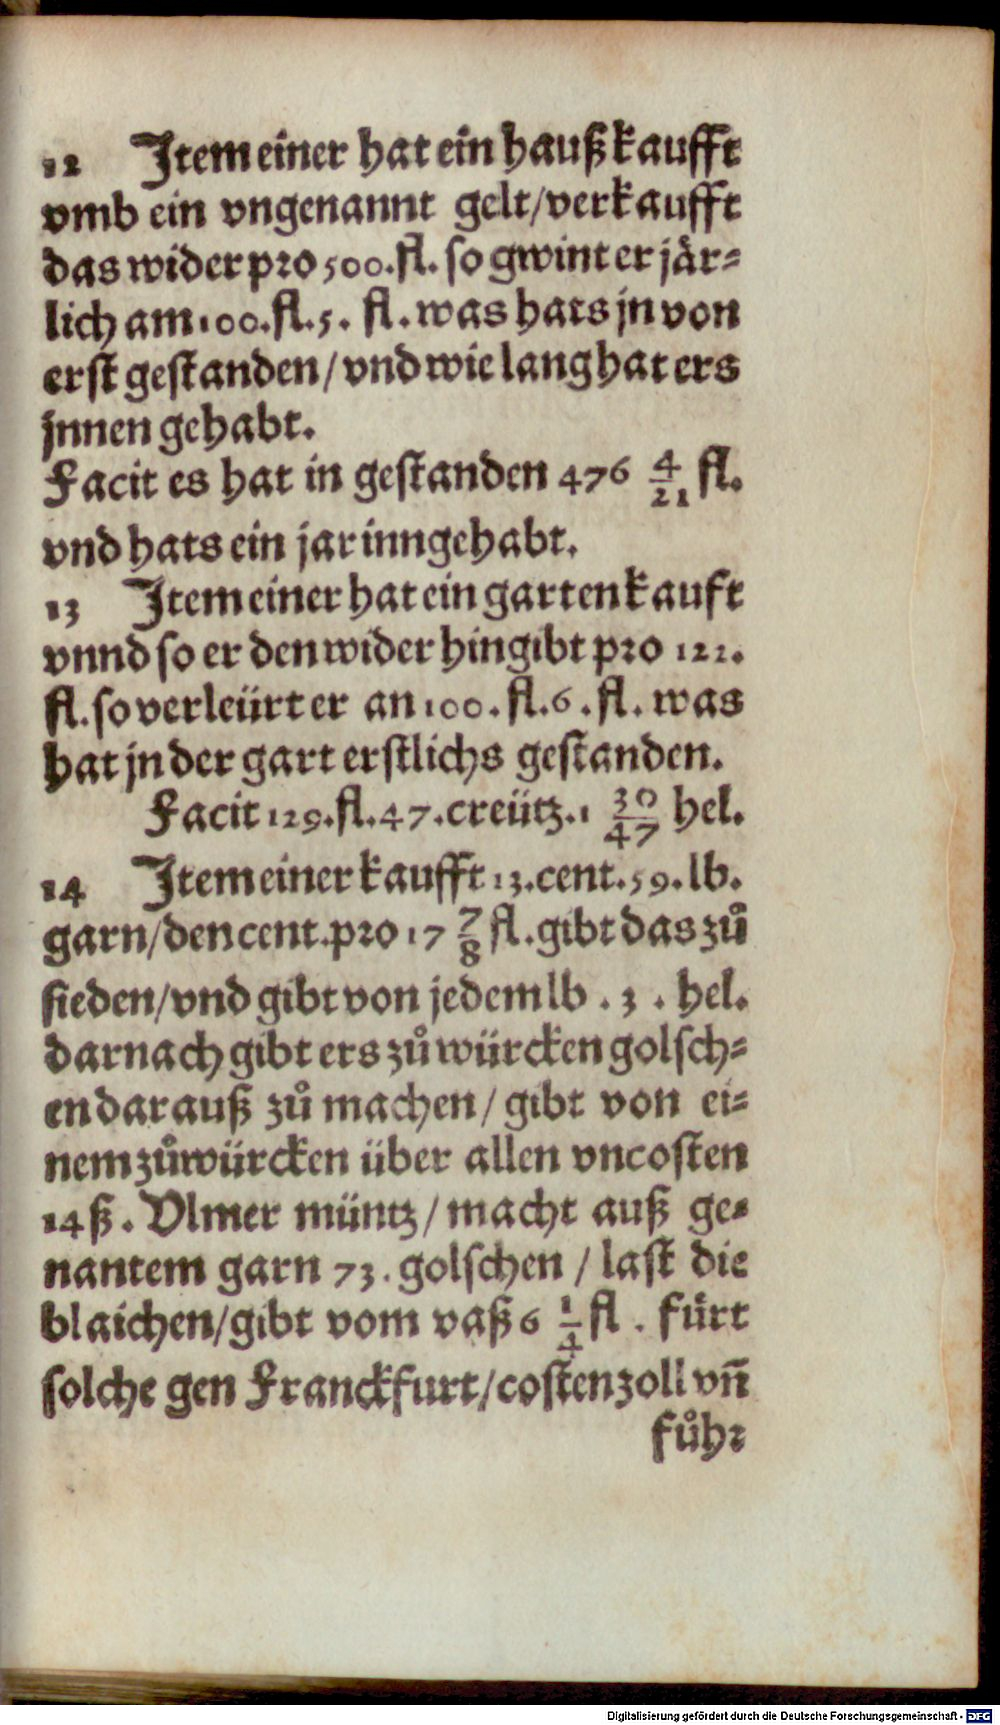 12 Item einer hat ein hauß kaufft
vmb ein vngenannt gelt/verkaufft
das wider pro 500.fl. so gwint er jär-
lich am 100.fl.5. fl. was hats jn von
erst gestanden/vnd wie lang hat ers
jnnen gehabt.
Facit es hat in gestanden 476 4/21 fl.
vnd hats ein jar inngehabt.
13 Item einer hat ein garten kauft
vnnd so er den wider hingibt pro 122.
fl. so verleürt er an 100. fl.6. fl. was
hat jn der gart erstlichs gestanden.
Facit 129.fl.47.creütz.1 30/47 hel.
14 Item einer kaufft 13.cent.59.lb.
garn/den cent.pro 17 7/8 fl.gibt das zů
sieden/vnd gibt von jedem lb . 3 . hel.
darnach gibt ers zů würcken golsch-
en darauß zů machen/ gibt von ei-
nem zůwürcken über allen vncosten
14 ß. Vlmer müntz/macht auß ge-
nantem garn 73. golschen / last die
blaichen/gibt vom vaß 6 1/4 fl . fürt
solche gen Franckfurt/costen zoll vñ
fůhr
Digitalisierung gefördert durch die Deutsche Forschungsgemeinschaft - DFG